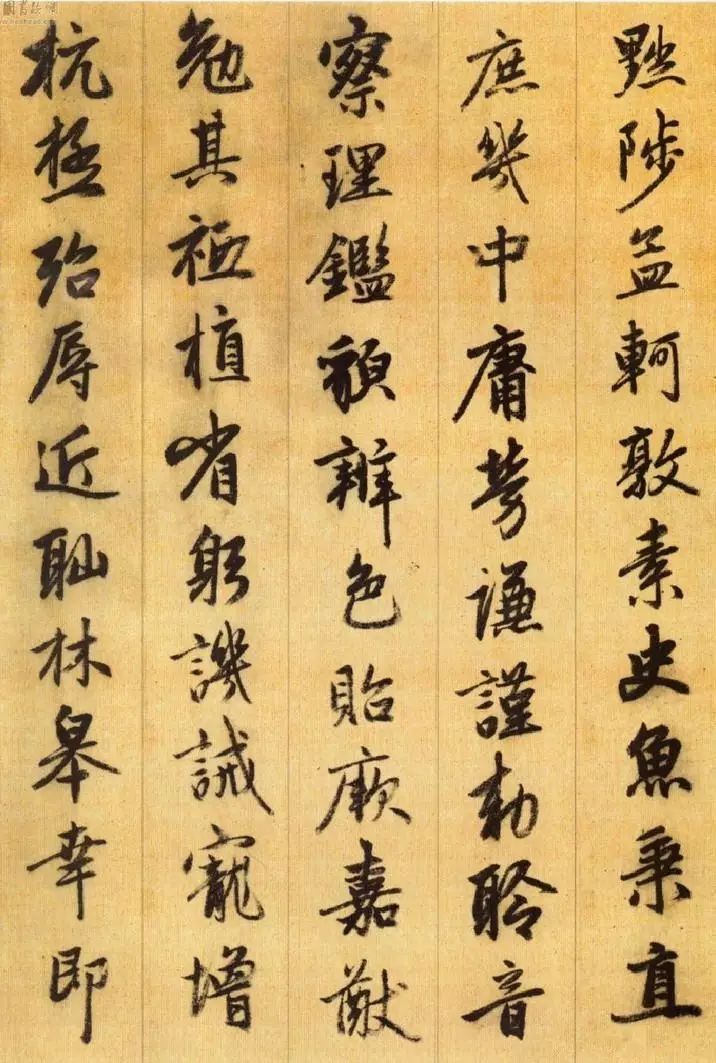 黜陟孟軻敦素史魚秉直
庶幾中庸勞謙謹勅聆音
察理鑑䫉辨色貽厥嘉猷
勉其祗植省躬譏誡寵增
抗極殆辱近耻林皋幸即